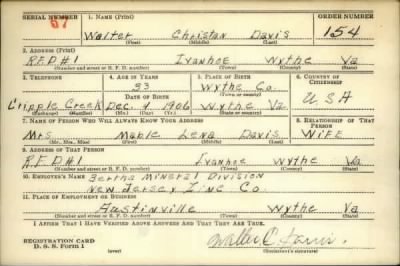 SERIAL NUMBER
67
1. NAME (Print)
ORDER NUMBER
Walter Christan Davis
154
(First) (Middle) (Last)
2. ADDRESS (Print)
R.F.D#1 Ivanhoe Wythe Va
(Number and street or R. F. D. number) (Town) (County) (State)
3. TELEPHONE
4. AGE IN YEARS
5. PLACE OF BIRTH
6. COUNTRY OF CITIZENSHIP
33
Wythe Co.
DATE OF BIRTH
(Town or county)
Cripple Creek Dec. 4 1906 Wythe Va U S A
(Exchange) (Number) (Mo.) (Day) (Yr.) (State or country)
7. NAME OF PERSON WHO WILL ALWAYS KNOW YOUR ADDRESS
8. RELATIONSHIP OF THAT PERSON
Mrs Mable Lena Davis Wife
(Mr., Mrs., Miss) (First) (Middle) (Last)
9. ADDRESS OF THAT PERSON
R.F.D#1 Ivanhoe Wythe Va
(Number and street or R. F. D. number) (Town) (County) (State)
10. EMPLOYER'S NAME
Bertha Mineral Division
New Jersey Zinc. Co
11. PLACE OF EMPLOYMENT OR BUSINESS
Austinville Wythe Va
(Number and street or R. F. D. number) (Town) (County) (State)
I AFFIRM THAT I HAVE VERIFIED ABOVE ANSWERS AND THAT THEY ARE TRUE.
REGISTRATION CARD
D. S. S. Form 1
(over)
Walter C Davis
(Registrant's signature)